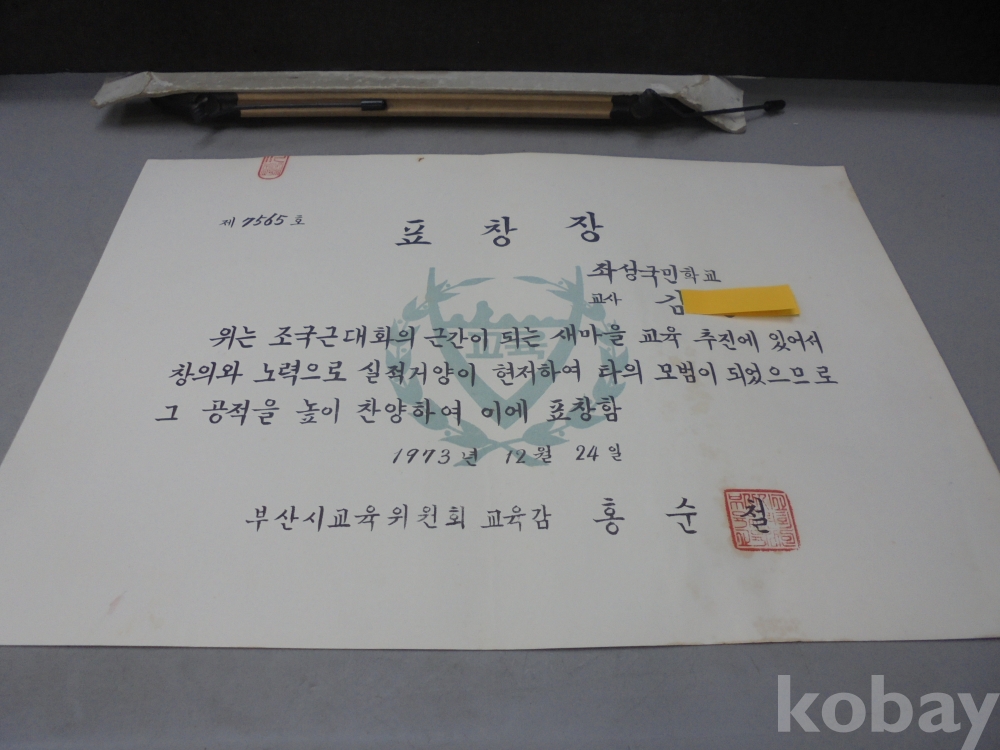 제 7565 호
표 창 장
좌성국민학교
교사 김
위는 조국근대회의 근간이 되는 새마을 교육 추진에 있어서
창의와 노력으로 실적거양이 현저하여 타의 모범이 되었으므로
그 공적을 높이 찬양하여 이에 표창함
교육
1973년 12월 24일
부산시교육위원회 교육감 홍 순 철
kobay